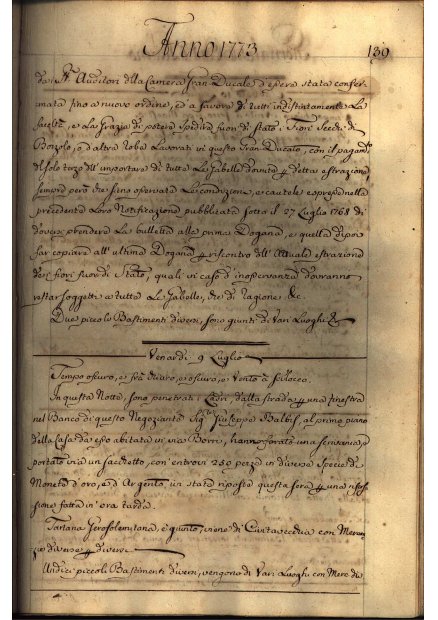 Anno 1773
139
da' SS.ri Auditori della Camera Gran Ducale d'essere stata confer
mata fino a nuovo ordine, e a favore di tutti indistintamente La
facoltà, e La Grazia di potere spedire fuori di stato i Fiori Secchi di
e altra Roba Lavorati in questo Gran Ducato, con il pagamto
del solo terzo dell'importare di tutte Le Gabelle dovute p detta estrazione
sempre però che siano osservate Le condizioni, e cautele espresse nella
precedente Loro Notificazione pubblicata sotto il 27 Luglio 1768 di
dovere prendere La bulletta alla prima Dogana, e quella di poi
far copiare all'ultima Dogana p riscontro dell'Attuale estrazione
de' fiori fuori di Stato, quali in caso d'inosservanza dovranno
restar soggetti a tutte Le Gabelle, che di ragione &c.
Due piccoli Bastimenti diversi, sono giunti di Vari Luoghi &c
Venerdì 9 Luglio
Tempo oscuro, e poi chiaro, e oscuro, e Vento a Scilocco.
In questa Notte, sono penetrati i Ladri dalla strada p una finestra
nel Banco di questo Negoziante Sigr Giuseppe Balbi, al primo piano
della Casa da esso abitata in via Borra, hanno forato una scrivania, e
portato via un sacchetto, con entrovi 250 pezze in diverse Specie di
Monete d'oro, e d'Argento, un stata riposte questa sera p una riscos
sione fatta in ora tarda.
Tartana Gerosolemitana, è giunta, viene di Civitavecchia con Mercan
zie diverse p diversi
Undici piccoli Bastimenti diversi, vengono di Vari Luoghi con Merc di